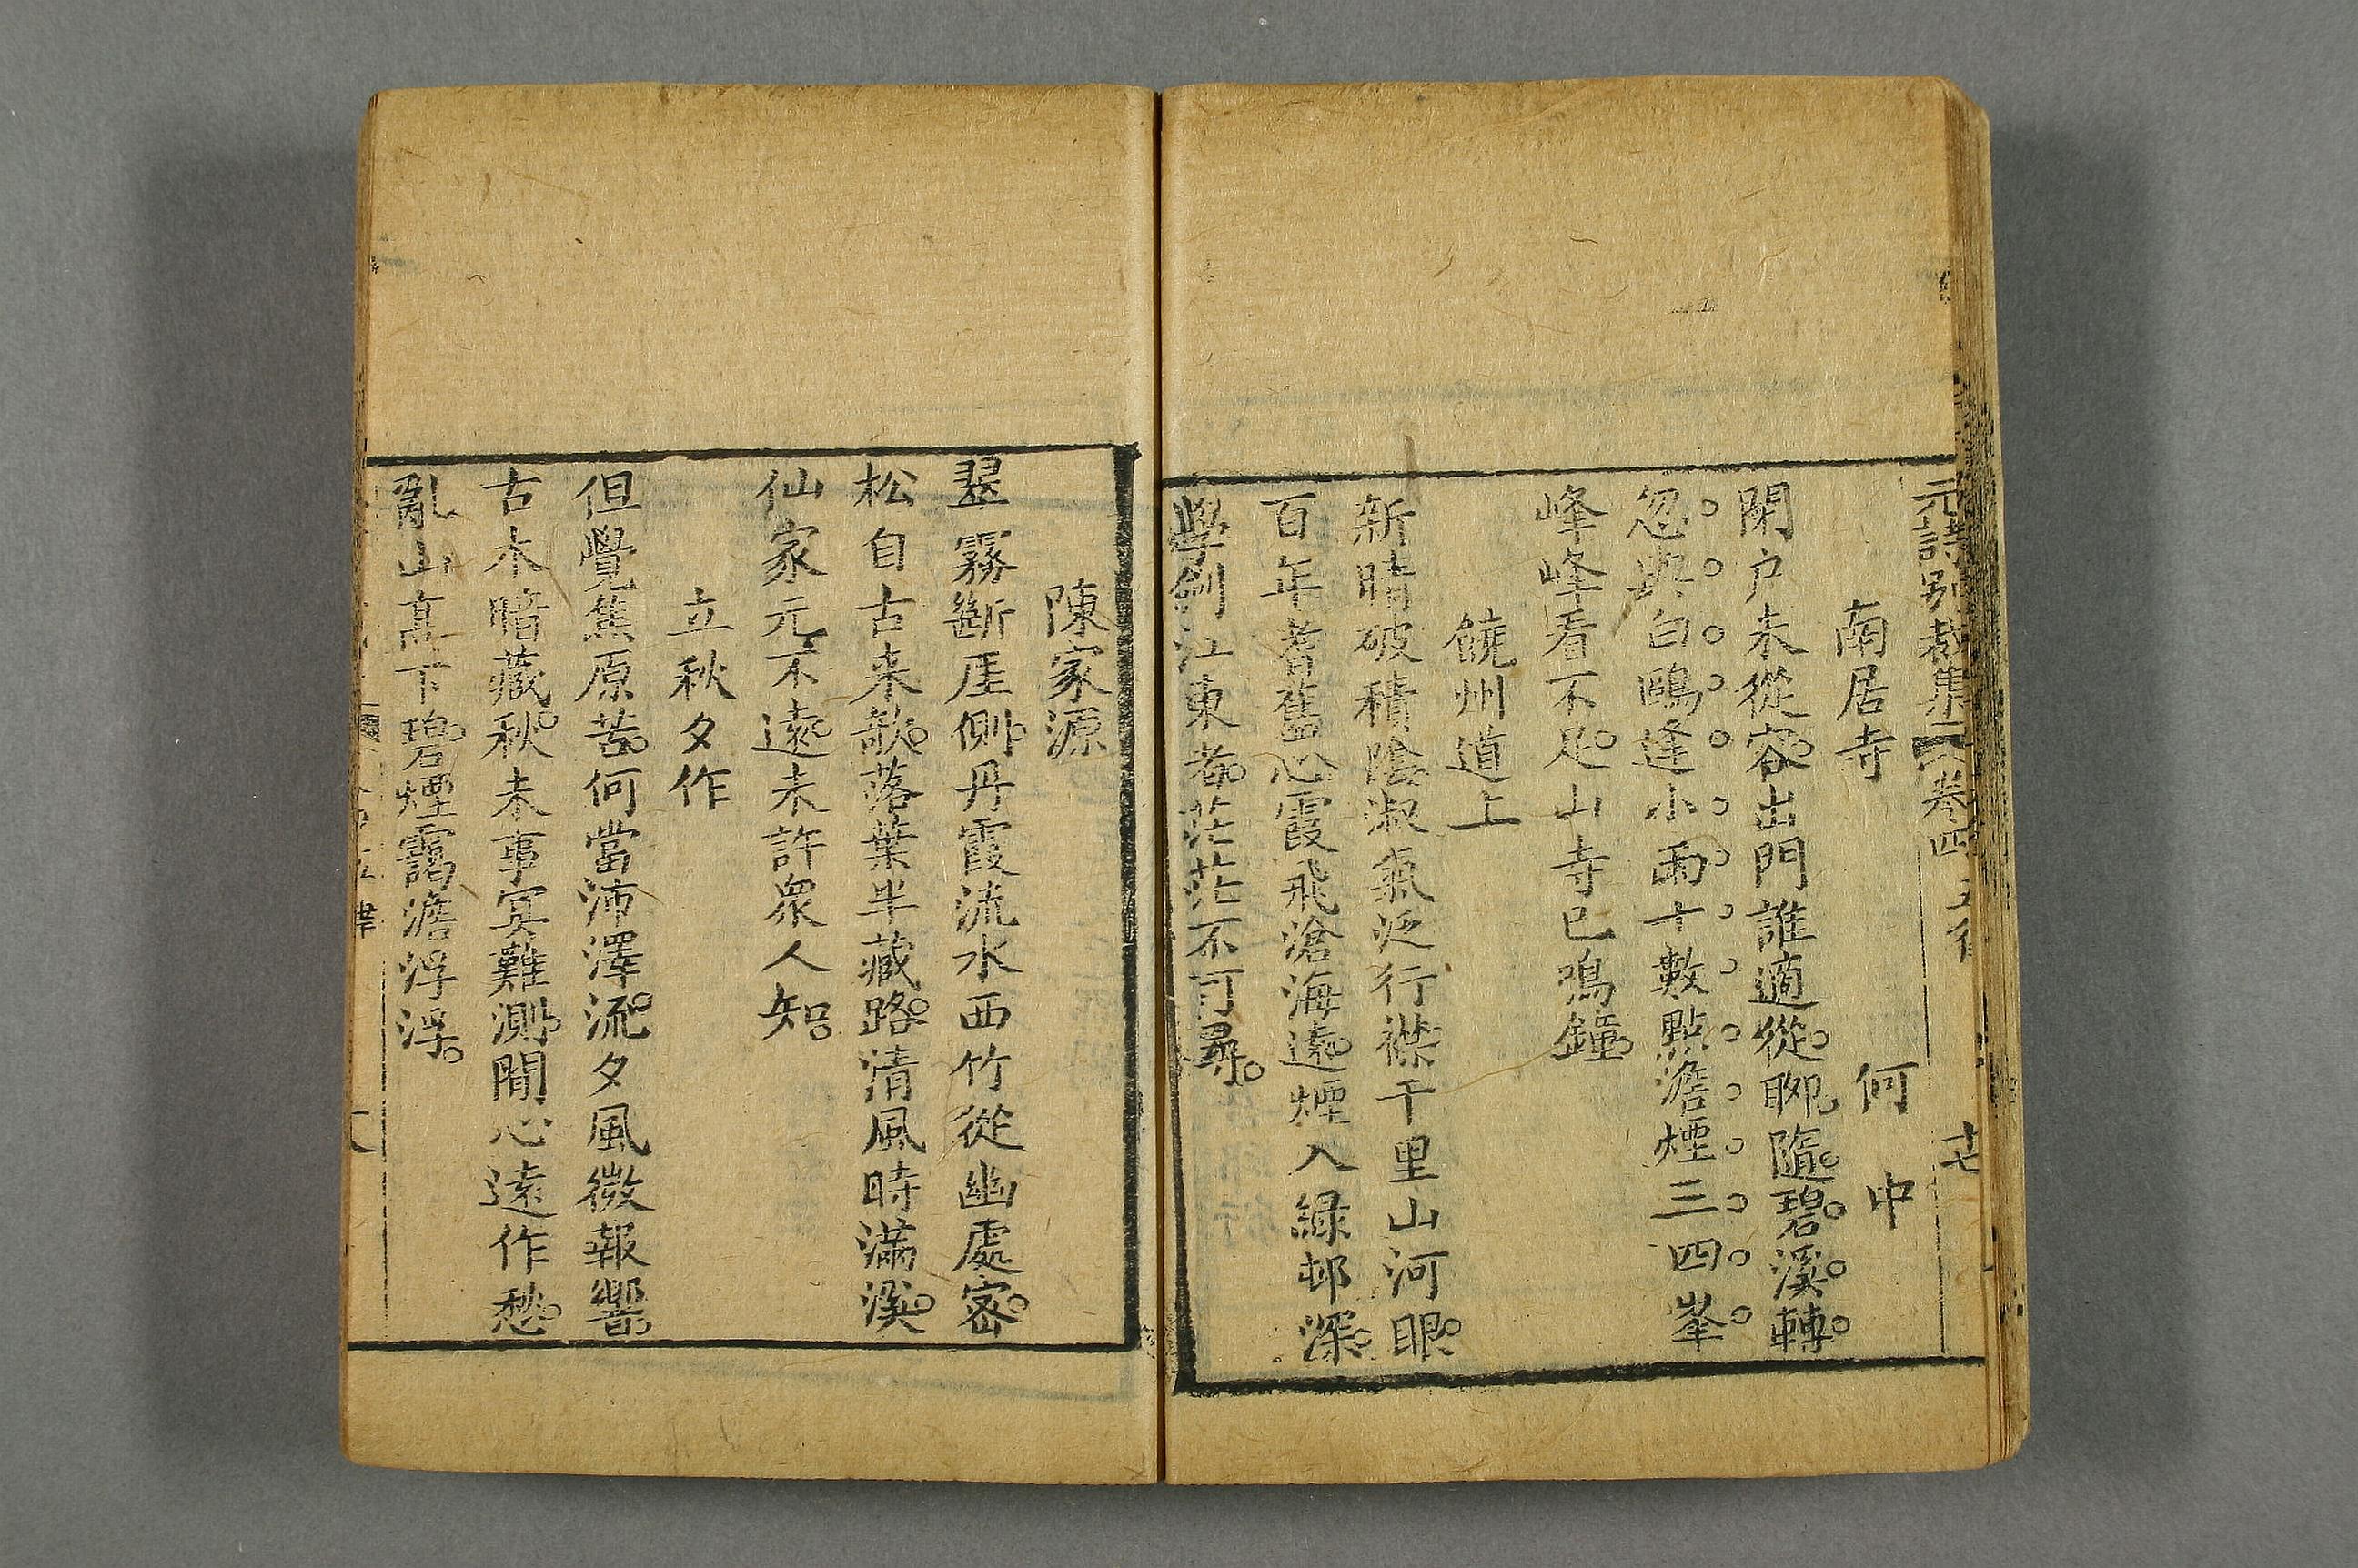 元詩別裁集 卷四 五律 七
南居寺 何中
閉户未從容出門誰適從聊隨碧溪轉
忽與白鷗逢小雨十數點澹煙三四峯
峰峰看不足山寺已鳴鐘
饒州道上
新晴破積陰淑氣泛行襟千里山河眼
百年耆舊心霞飛滄海遠煙入緑邨深
學劍江東者茫茫不可尋
陳家源
翠霧斷厓側丹霞流水西竹從幽處密
松自古来欹落葉半藏路清風時滿溪
仙家元不遠未許衆人知
立秋夕作
但覺焦原苦何當沛澤流夕風微報響
古木暗藏秋未事寅難測閒心遠作愁
亂山高下碧煙靄澹浮浮